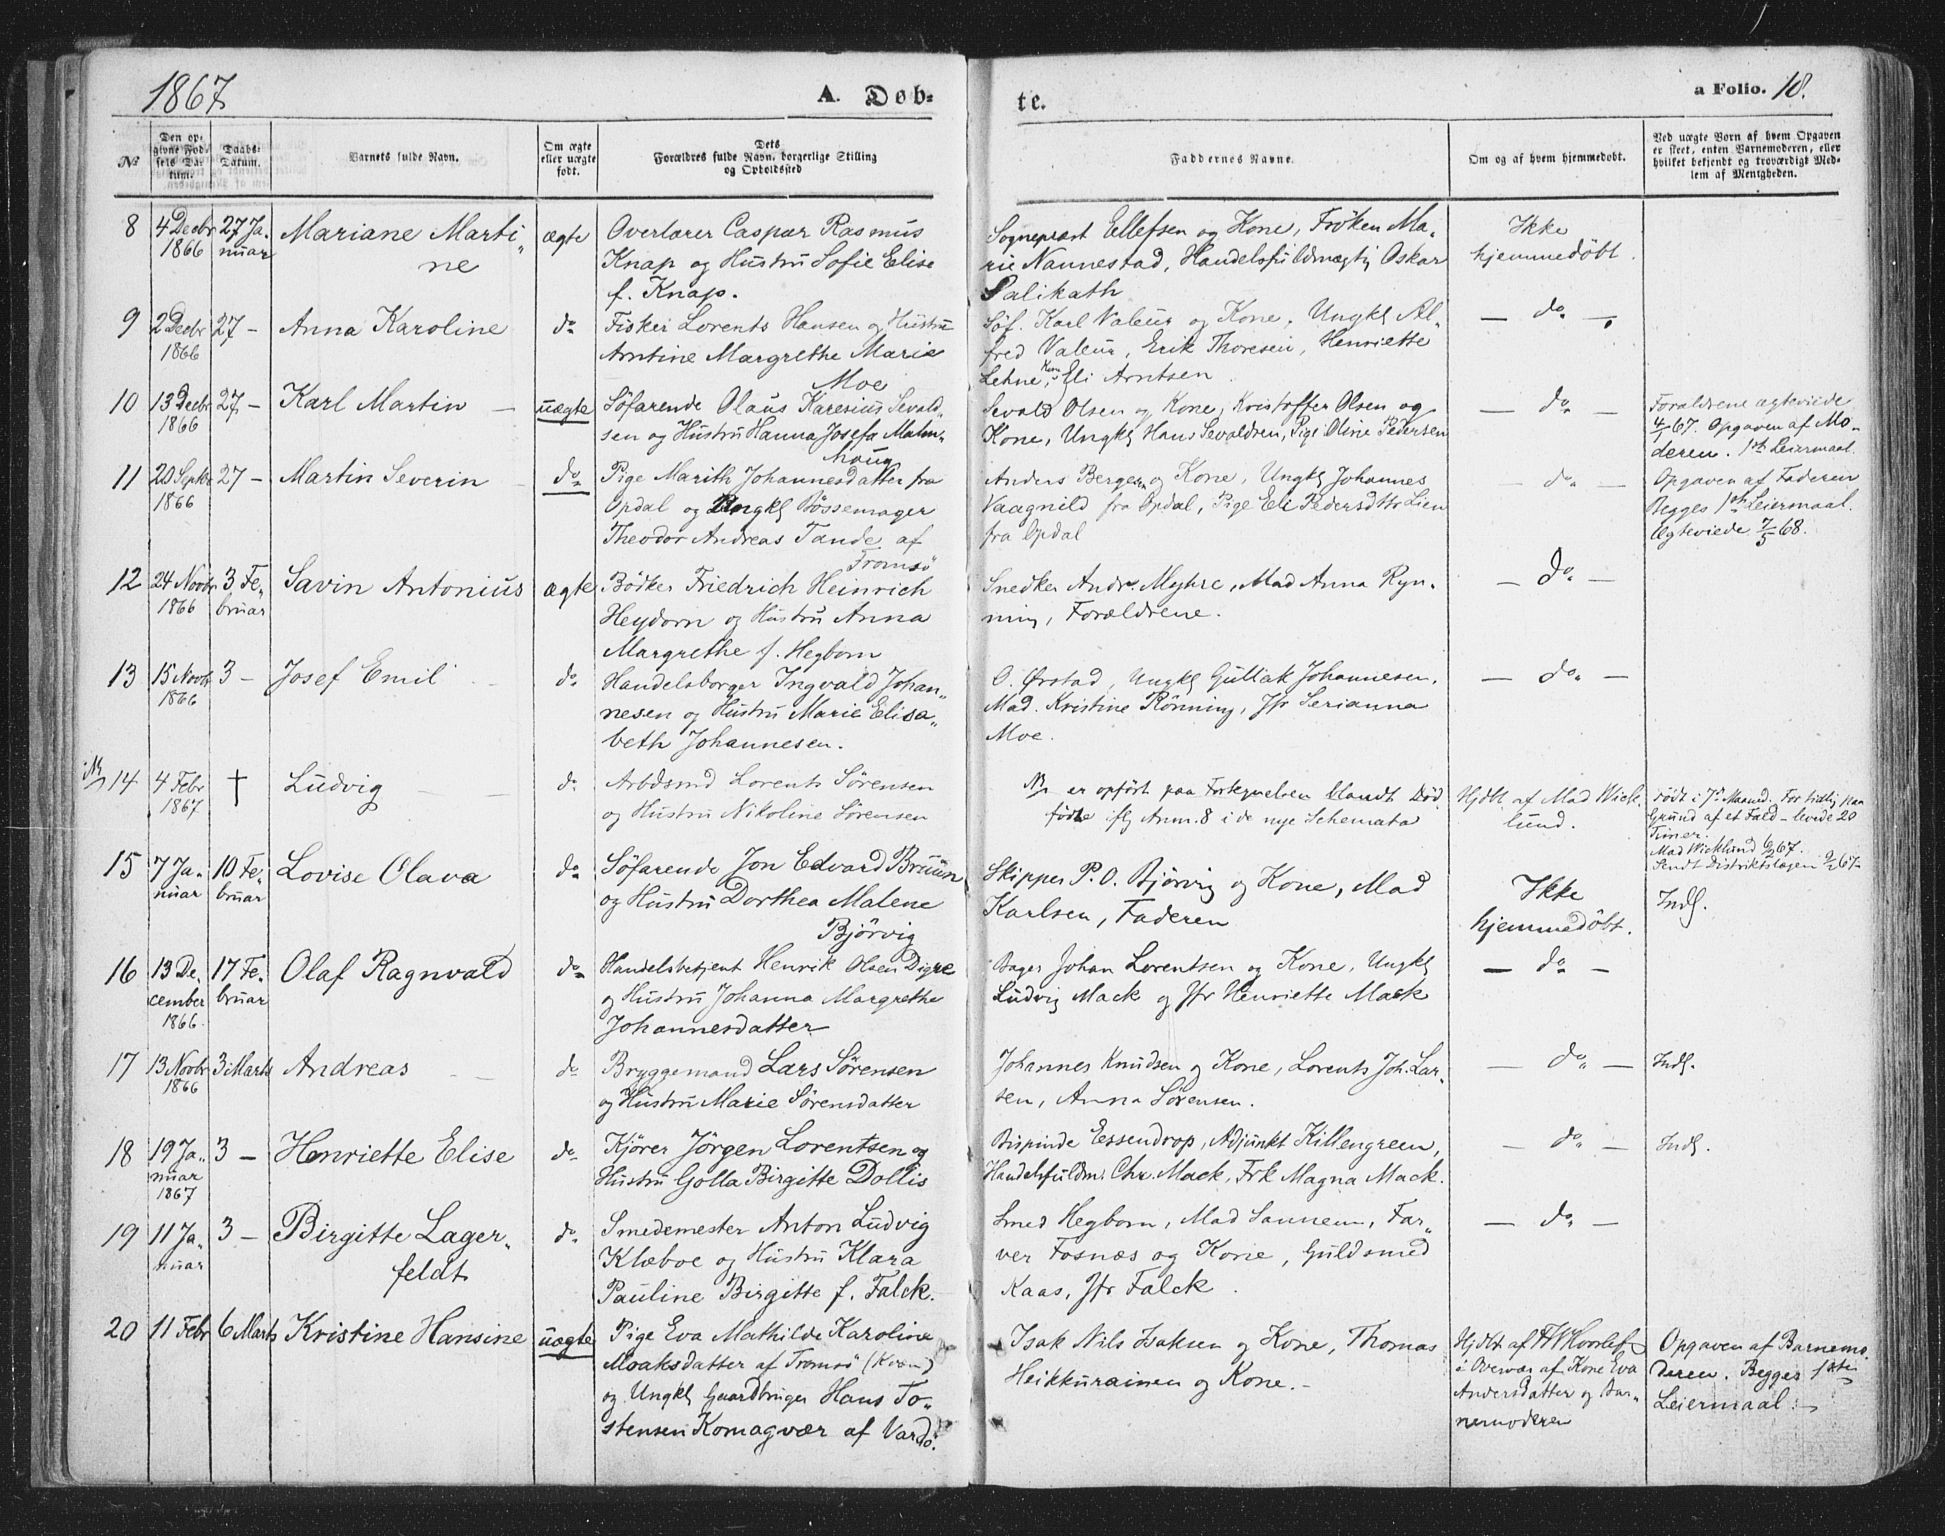 1867
A. Døb-
te.
a Folio. 10.
No
Den op-
givne Fød-
sels Da-
tum.
Daabs-
Datum.
Barnets fulde Navn.
Om ægte
eller uægte
født.
Dets
Forældres fulde Navn, borgerlige Stilling
og Opholdssted
Faddernes Navne.
Om og af hvem hjemmedøbt.
Ved uægte Børn af hvem Opgaven
er skeet, enten Barnemoderen, eller
hvilket bekjendt og troværdigt Med-
lem af Menigheden.
8
4 Decbr
1866
27 Ja-
nuar
Mariane Marti-
ne
ægte
Overlærer Caspar Rasmus
Knap og Hustru Sofie Elise
f. Knap.
Sognepræst Ellefsen og Kone, Frøken Ma-
rie Nannestad, Handelsfuldmægtig Oskar
Salikath
Ikke
hjemmedöbt.
9
2 Decbr
1866
27 —
Anna Karoline
do
Fisker Lorents Hansen og Hustru
Arntine Margrethe Marie
Moe
Söf. Karl Valeur og Kone, Ungkl Al-
fred Valeur, Erik Thoresen, Henriette
Lehne, Kone Eli Arntsen
— do —
10
13 Decbr
1866
27 —
Karl Martin —
uægte
Söfarende Olaus Karesius Sevald-
sen og Hustru Hanna Josefa Malm-
houg
Sevald Olsen og Kone, Kristoffer Olsen og
Kone, Ungkl Hans Sevaldsen, Pige Oline Pedersen
— do —
Forældrene ægteviede
4/1 67. Opgaven af Mo-
deren. 1ste Leiermaal.
11
20 Septbr
1866
27 —
Martin Severin —
do
Pige Marith Johannesdatter fra
Opdal og Ungkl Bössemager
Theodor Andreas Tande af
Tromsö
Anders Bergesen og Kone, Ungkl Johannes
Vaagnild fra Opdal, Pige Eli Pedersdttr Lien
fra Opdal
— do —
Opgaven af Faderen
Begges 1ste Leiermaal.
Ægteviede 7/5 68.
12
24 Novbr
1866
3 Fe-
bruar
Savin Antonius
ægte
Bödker Friedrich Heinrich
Heydorn og Hustru Anna
Margrethe f. Hegborn
Snedker Andr. Myhre, Mad Anna Ryn-
ning, Forældrene.
— do —
13
15 Novbr
1866
3 —
Josef Emil —
do
Handelsborger Ingvald Johan-
nesen og Hustru Marie Elisa-
beth Johannesen.
O. Ørstad, Ungkl Gullak Johannesen,
Mad. Kristine Rönning, Jfr Serianna
Moe.
— do —
14
4 Febr
1867
†
Ludvig — —
do
Arbdsmd Lorents Sörensen
og Hustru Nikoline Sörensen
er opfört paa blandt Död
födte iflg Anm. 8 i de nye Schemata
Hjdbt af Mad Wick-
lund.
Födt i 7de Maaned. For tidlig paa
Grund af et Fald – levede 20
Timer.
Mad Wicklund 6/2 67.
Sendt Distriktslægen 9/2 67
15
7 Ja-
nuar
10 Fe-
bruar
Lovise Olava
do
Söfarende Jon Edvard Bruun
og Hustru Dorthea Malene
Björvig
Skipper P. O. Björvig og Kone, Mad
Karlsen, Faderen
Ikke
hjemmedöbt.
Indf.
16
13 De-
cember
1866
17 Fe-
bruar
Olaf Ragnvald
do
Handelsbetjent Henrik Olsen Digre
og Hustru Johanna Margrethe
Johannesdatter
Bager Johan Lorentsen og Kone, Ungkl
Ludvig Mack og Jfr Henriette Mack
— do —
17
13 Novbr
1866
3 Marts
Andreas —
do
Bryggemand Lars Sörensen
og Hustru Marie Sörensdatter
Johannes Knudsen og Kone, Lorents Joh. Lar-
sen, Anna Sörensen.
— do —
Indf.
18
19 Ja-
nuar
1867
3 —
Henriette Elise
do
Kjörer Jörgen Lorentsen og
Hustru Golla Birgitte Dollis
Bispinde Essendrop, Adjunkt Killengreen,
Handelsfuldm. Chr. Mack, Frk Magna Mack.
— do —
Indf.
19
11 Ja-
nuar
3 —
Birgitte Lager-
feldt
do
Smedemester Anton Ludvig
Klæboe og Hustru Klara
Pauline Birgitte f. Falck.
Smed Hegborn, Mad Sannem, Far-
ver Fosnæs og Kone, Guldsmed
Kaas, Jfr Falck.
— do —
20
11 Febr
6 Marts
Kristine Hansine
uægte
Pige Eva Mathilde Karoline
Isaksdatter af Tromsö (Kvæn)
og Ungkl Gaardbruger Hans To-
stensen Komagvær af Vardö.
Isak Nils Isaksen og Kone, Thomas
Heikkurainen og Kone. –
Hjdbt af
i Overvær af Kone Eva
Andersdatter og Bar-
nemoderen
Opgaven af Barnemo-
deren. Begges 1ste
Leiermaal.